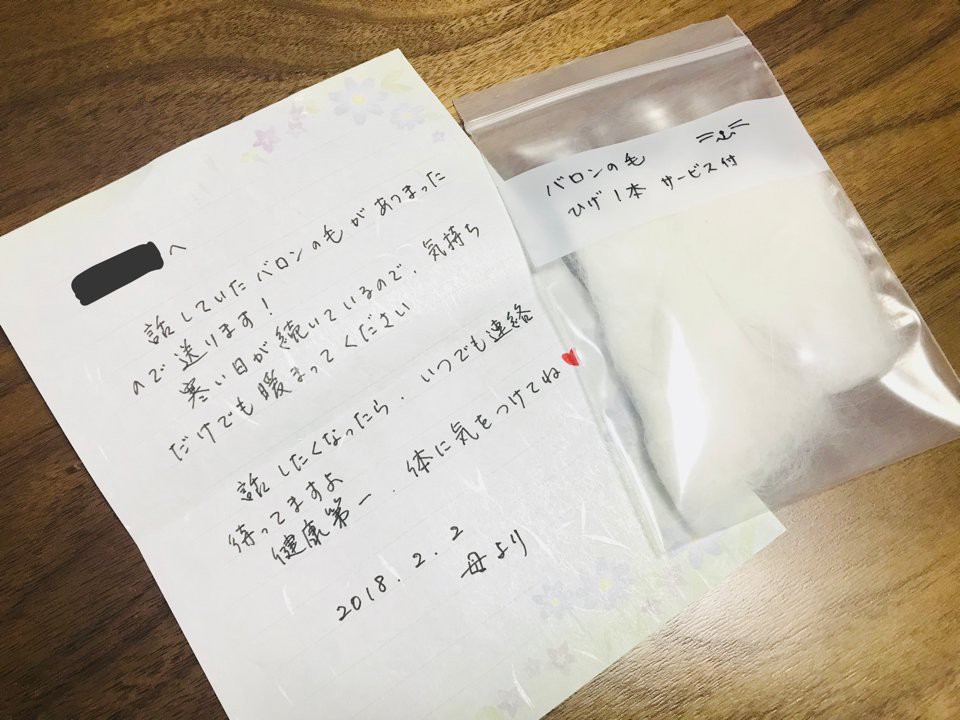 へ
話していたバロンの毛があつまった
ので送ります!
寒い日が続いているので、気持ち
だけでも暖まってください
話したくなったら、いつでも連絡
待ってますよ
健康第一、体に気をつけてね
2018.2.2
母より
バロンの毛
ひげ1本 サービス付